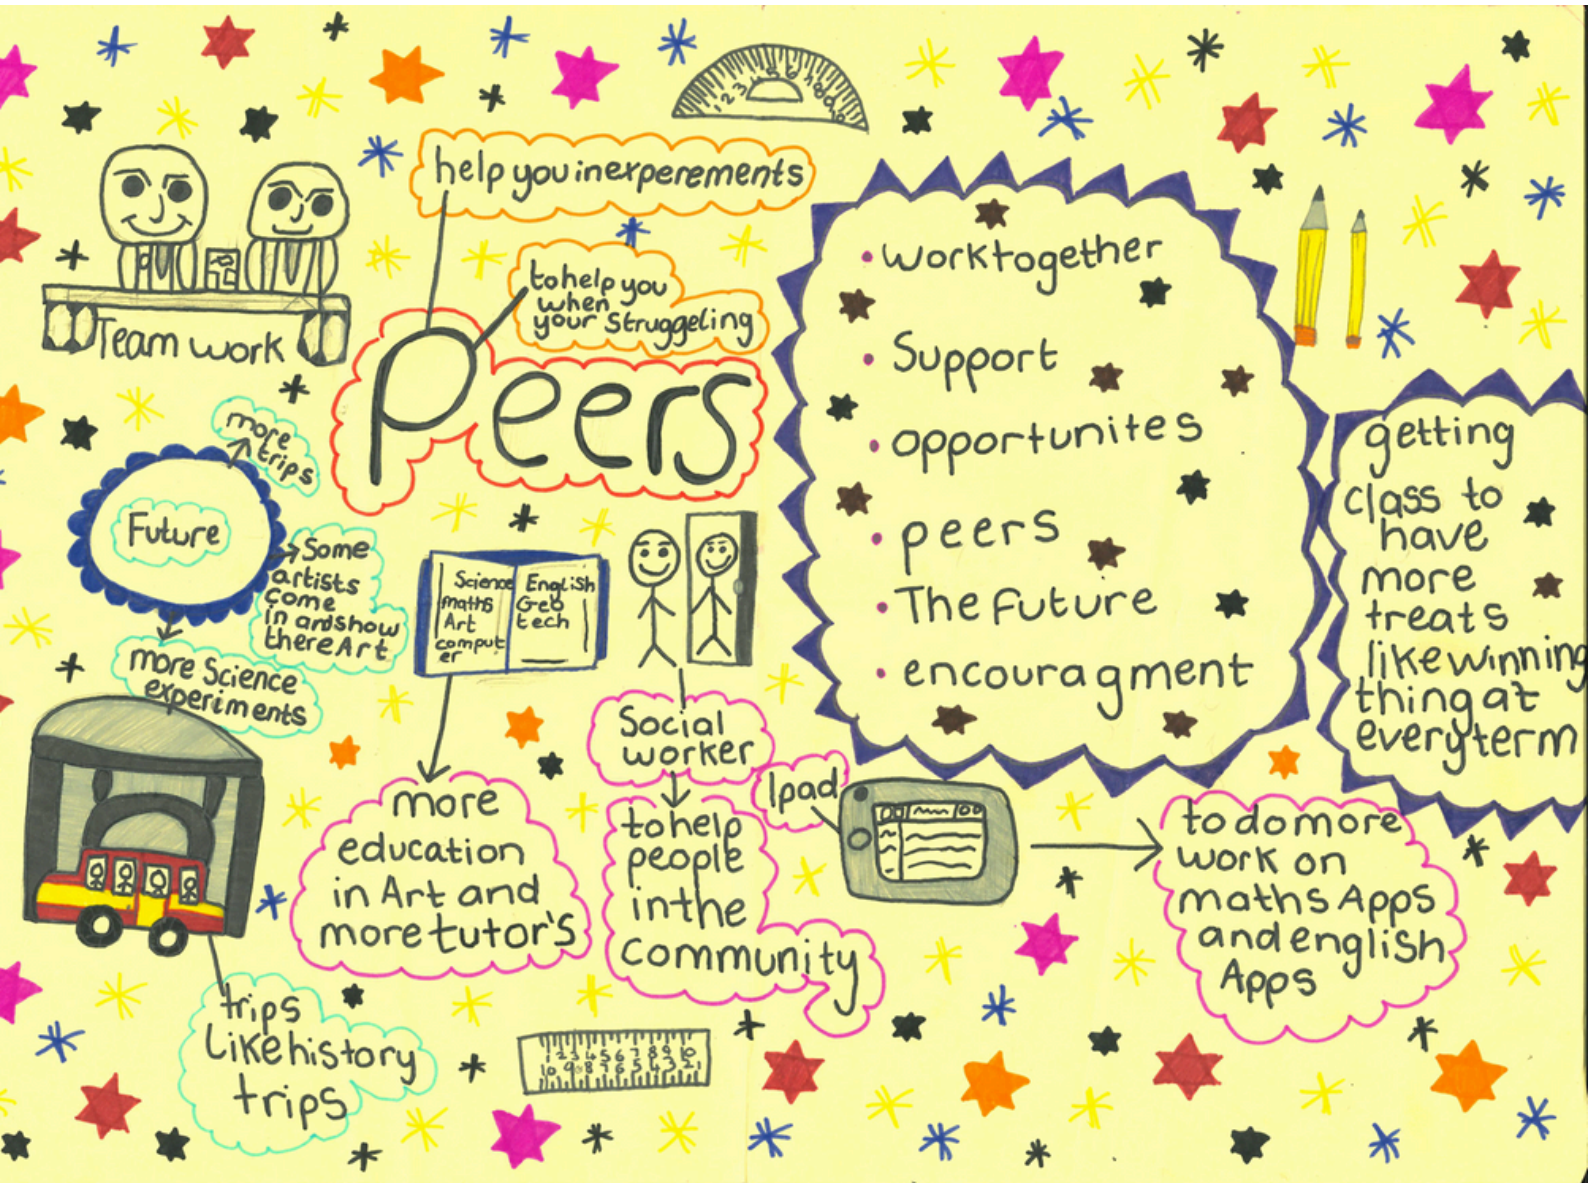 help you in experements
to help you
when
your Struggeling
Peers
Team work
more
trips
Future
Some
artists
come
in and show
there Art
more Science
experiments
Science
maths
Art
comput
er
English
Geo
tech
more
education
in Art and
more tutor's
Social
worker
to help
people
in the
community
Ipad
to do more
work on
maths Apps
and english
Apps
trips
Like history
trips
• work together
• Support
• opportunites
• peers
• The Future
• encouragment
getting
class to
have
more
treats
like winning
thing at
every term